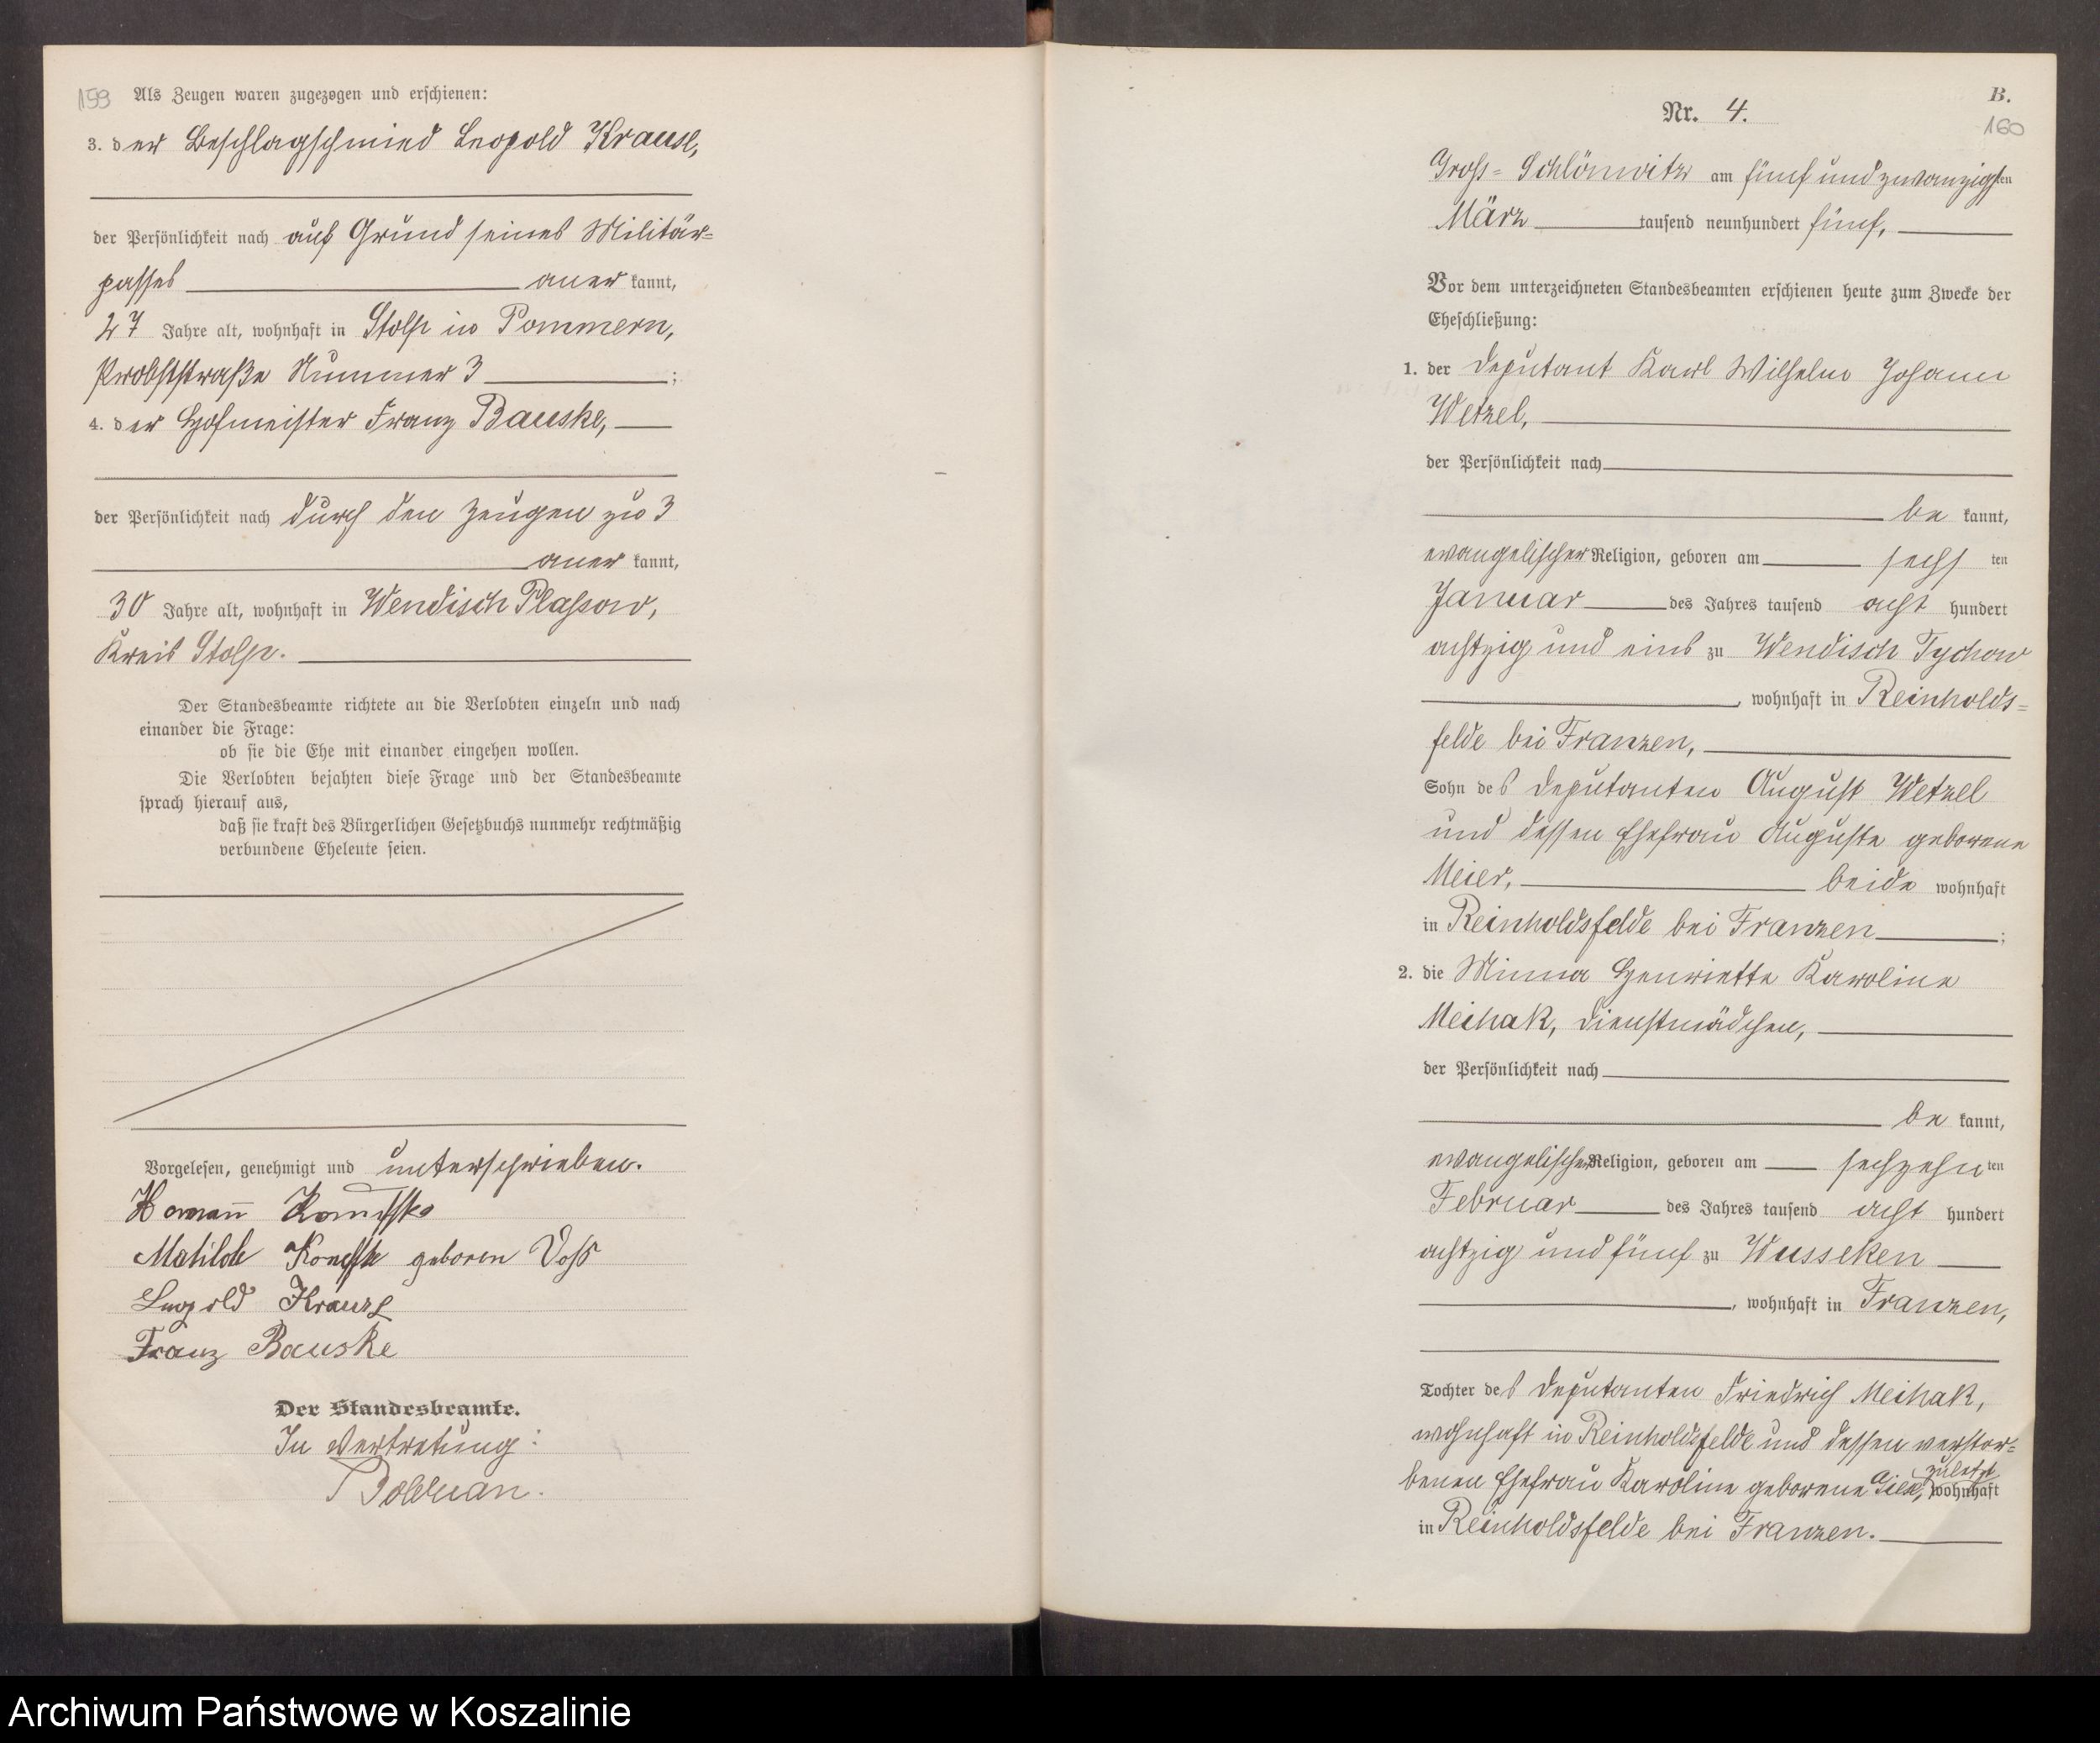 159 Als Zeugen waren zugezogen und erschienen:
3. der Beschlagschmied Leopold Krause,
der Persönlichkeit nach auf Grund seines Militär=
passes aner kannt,
27 Jahre alt, wohnhaft in Stolp in Pommern,
Probststraße Nummer 3 ;
4. der Hofmeister Franz Bauske,
der Persönlichkeit nach durch den Zeugen zu 3
aner kannt,
30 Jahre alt, wohnhaft in Wendisch Plassow,
Kreis Stolp.
Der Standesbeamte richtete an die Verlobten einzeln und nach
einander die Frage:
ob sie die Ehe mit einander eingehen wollen.
Die Verlobten bejahten diese Frage und der Standesbeamte
sprach hierauf aus,
daß sie kraft des Bürgerlichen Gesetzbuchs nunmehr rechtmäßig
verbundene Eheleute seien.
Vorgelesen, genehmigt und unterschrieben.
Matilde geboren Voß
Leopold Krause
Franz Bauske
Der Standesbeamte.
In Vertretung:
B.
Nr. 4.
160
Gross=Schlönwitz am fünf und zwanzigsten
März tausend neunhundert fünf,
Vor dem unterzeichneten Standesbeamten erschienen heute zum Zwecke der
Eheschließung:
1. der Deputant Karl Wilhelm Johann
Wetzel,
der Persönlichkeit nach
be kannt,
evangelischer Religion, geboren am sechs ten
Januar des Jahres tausend acht hundert
achtzig und eins zu Wendisch Tychow
, wohnhaft in Reinholds=
felde bei Franzen,
Sohn des Deputanten August Wetzel
und dessen Ehefrau Auguste geborene
Meier, beide wohnhaft
in Reinholdsfelde bei Franzen ;
2. die Minna Henriette Karoline
Meihak, Dienstmädchen,
der Persönlichkeit nach
be kannt,
evangelischer Religion, geboren am sechzehn ten
Februar des Jahres tausend acht hundert
achtzig und fünf zu Wusseken
, wohnhaft in Franzen,
Tochter des Deputanten Friedrich Meihak,
wohnhaft in Reinholdsfelde und dessen verstor=
benen Ehefrau Karoline geborene zuletzt wohnhaft
in Reinholdsfelde bei Franzen.
Archiwum Państwowe w Koszalinie